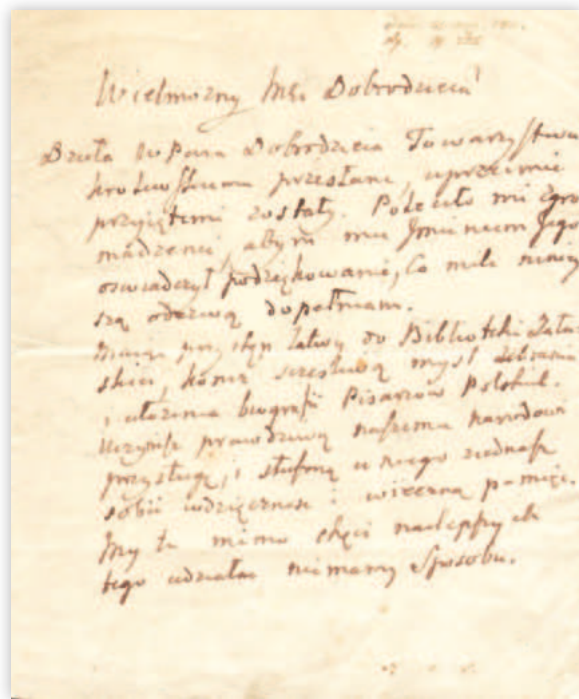 Wielmożny Mści Dobrodzieju!
Dzieła WPana Dobrodzieja Towarzystwu
przesłane, uprzeimie
przyiętemi zostały. Poleciło mi Zgro
madzenie, abym mu Imieniem Jego
oswiadczył podziękowanie, co mile ninieÿ
szą odezwą dopełniam.
Maiąc przystęp łatwy do Biblioteki Zału
skich, szczęśliwą myśl zebrania
i ułożenia biografii Pisarzow Polskich.
Uczynisz prawdziwą naszemu narodowi
przysługę, i słuszną u niego ziednasz
sobie wdzięczność i wieczną pamięć.
My tu mimo chęci naylepszych
tego udziałać niemamy Sposobu.